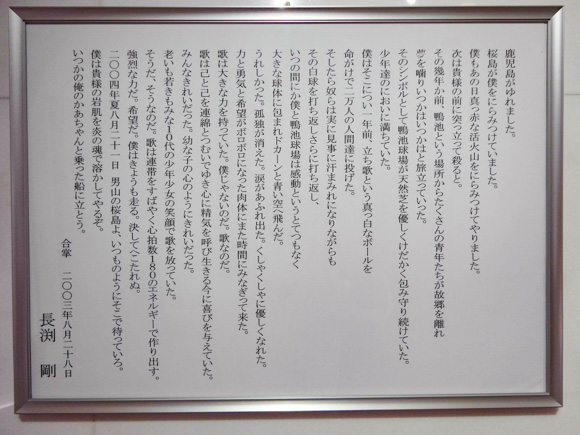 鹿児島がゆれました。
桜島が僕をにらみつけていました。
僕もあの日真っ赤な活火山をにらみつけてやりました。
次は貴様の前に突っ立って殺ると。
その幾年か前、鴨池という場所からたくさんの青年たちが故郷を離れ
夢を噛りいつかはいつかはと旅立っていった。
そのシンボルとして鴨池球場が天然芝を優しくけだかく包み守り続けていた。
少年達のにおいに満ちていた。
僕はそこについ一年前、立ち歌という真っ白なボールを
命がけで二万人の人間達に投げた。
そしたら奴らは実に見事に汗まみれになりながらも
その白球を打ち返しさらに打ち返し、
いつの間にか僕と鴨池球場は感動というとてつもなく
大きな球体に包まれドカーンと青い空へ飛んだ。
うれしかった。孤独が消えた。涙があふれ出た。くしゃくしゃに優しくなれた。
力と勇気と希望がボロボロになった肉体にまた時間にみなぎって来た。
歌は大きな力を持っていた。僕じゃないのだ。歌なのだ。
歌は己と己を連綿とつむいでゆき心に精気を呼び生きる今に喜びを与えていた。
みんなきれいだった。幼な子の心のようにきれいだった。
老いも若きもみな10代の少年少女の笑顔で歌を放っていた。
そうだ、そうなのだ。歌は連帯をすばやく心拍数180のエネルギーで作り出す。
強烈な力だ。希望だ。僕はきょうも走る。決してへこたれぬ。
二〇〇四年夏八月二十一日 男山の桜島よ、いつものようにそこで待っていろ。
僕は貴様の岩肌を炎の魂で溶かしてやるぞ。
いつかの俺のかあちゃんと乗った船に立とう。
合掌 二〇〇三年八月二十八日
長渕 剛